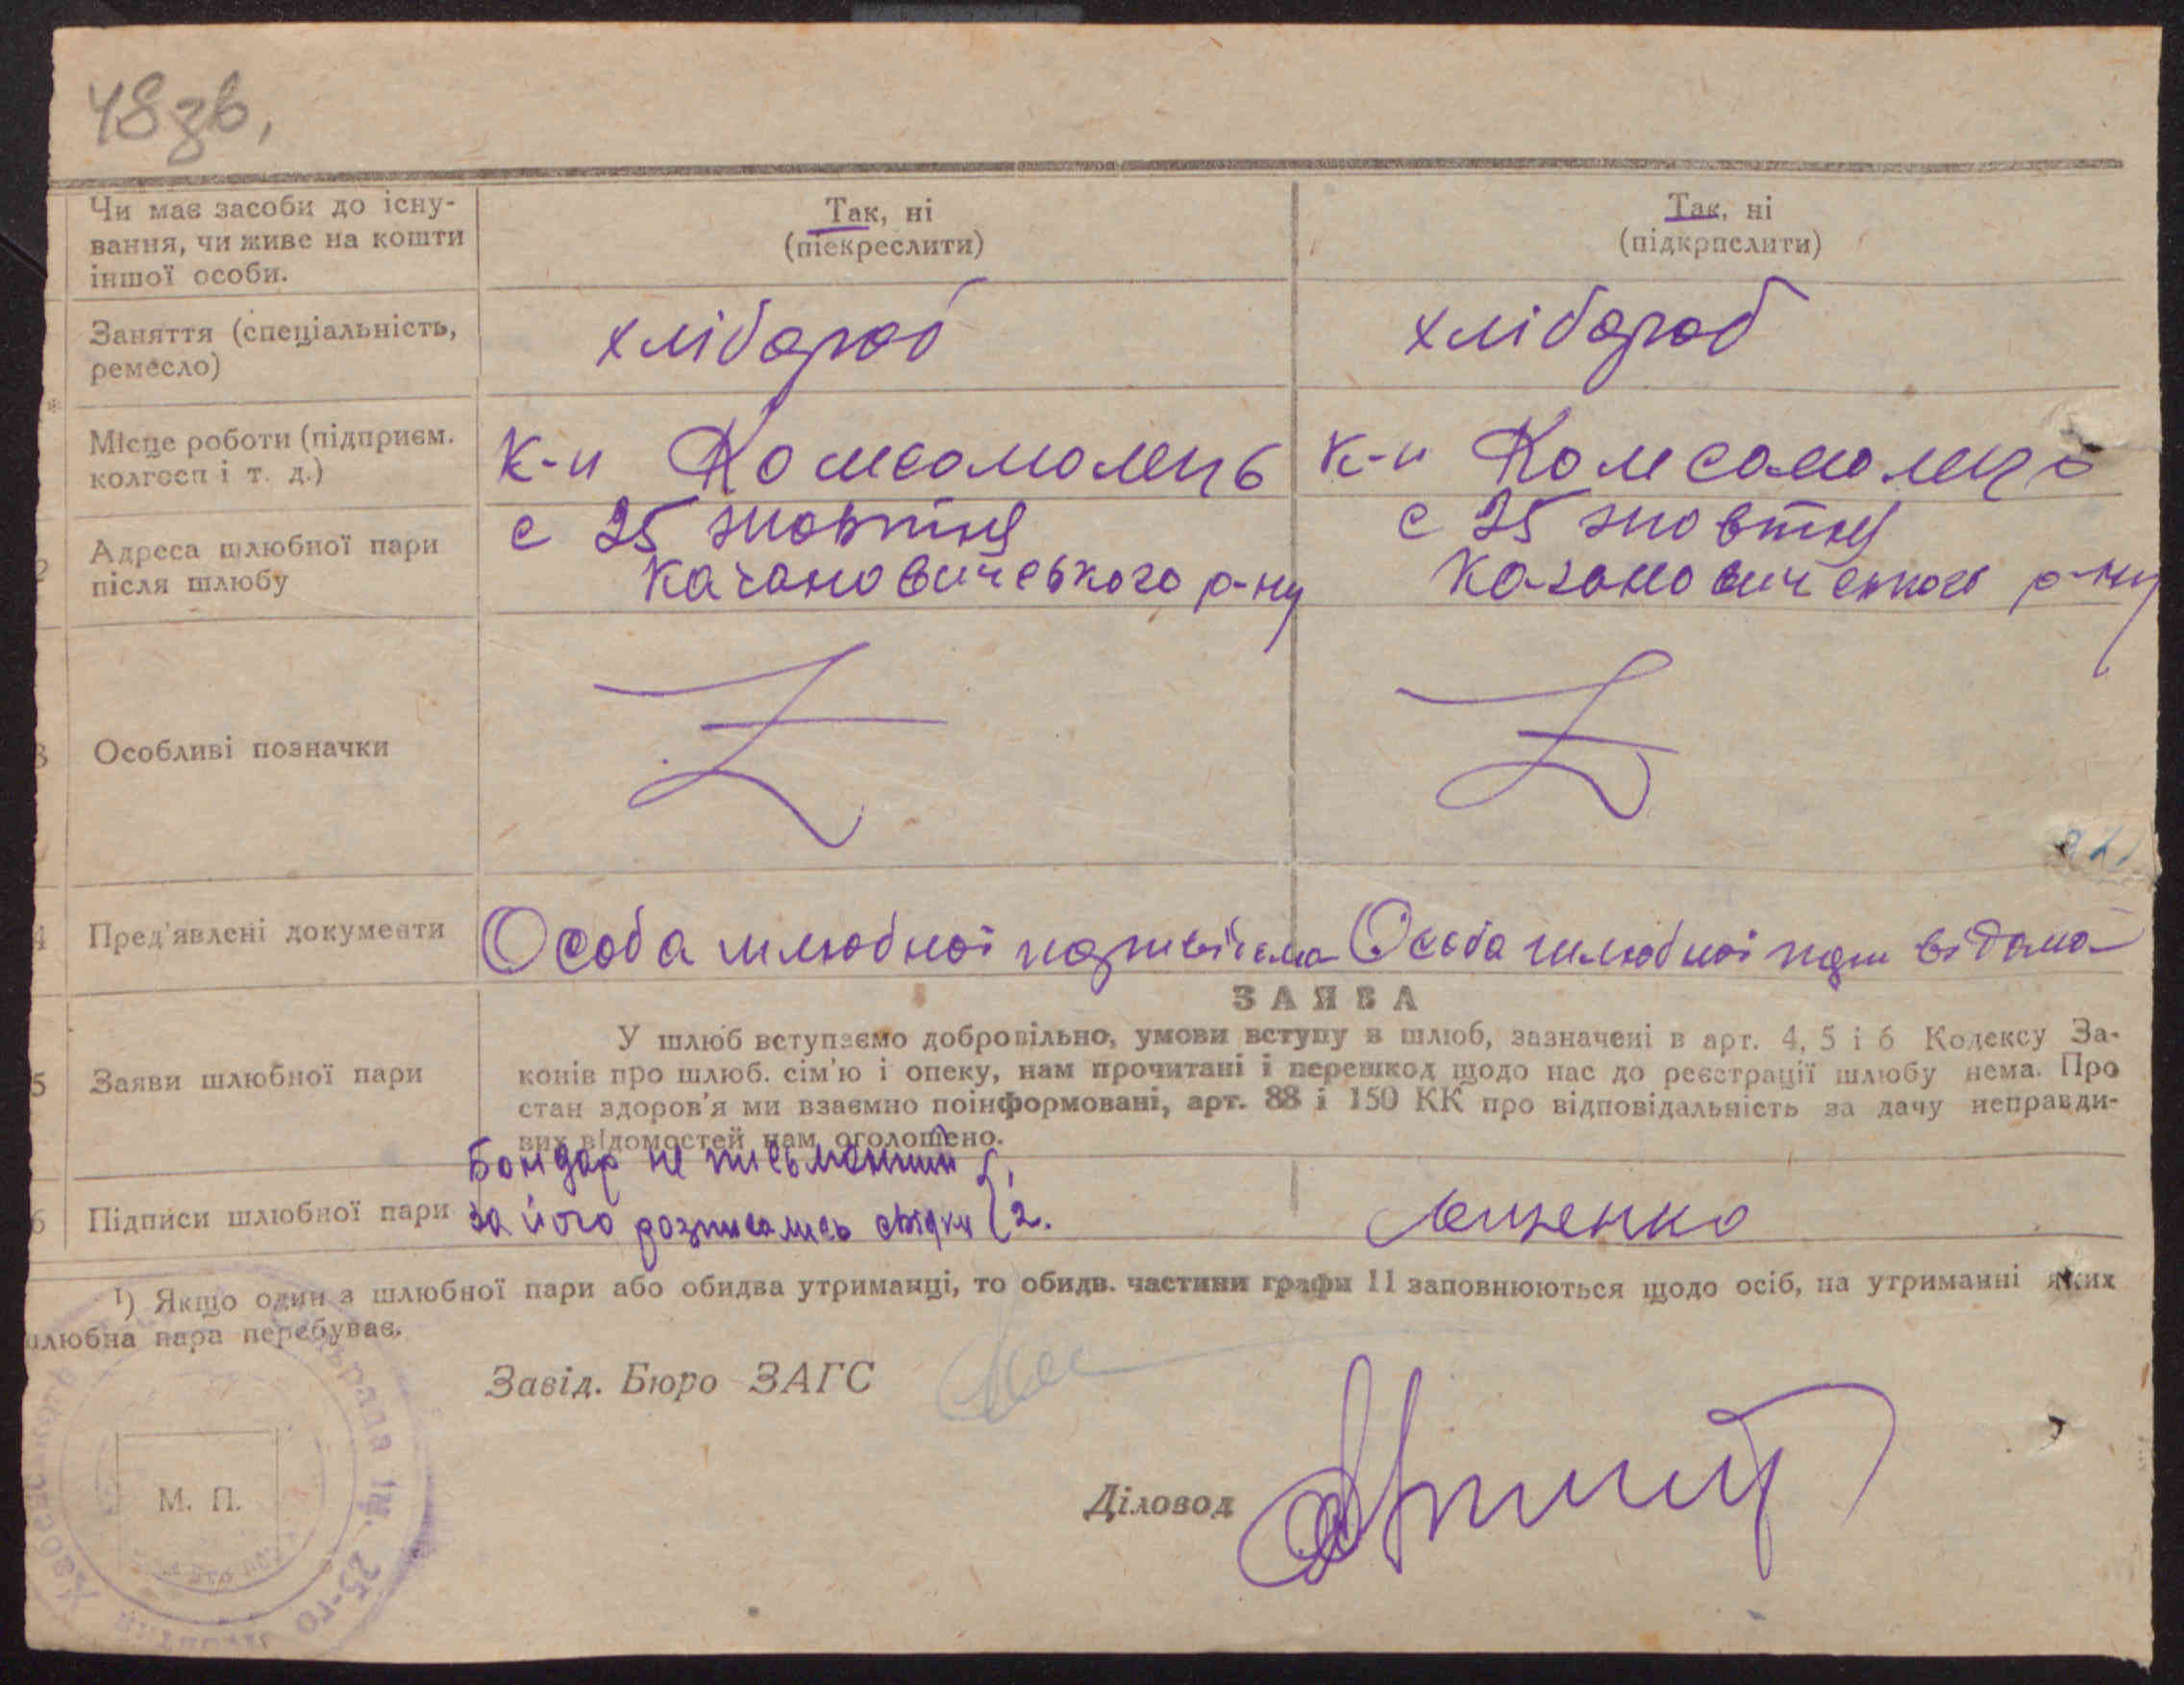 48 зв,
Чи має засоби до існу-
вання, чи живе на кошти
іншої особи.
Так, ні
(піекреслити)
Так, ні
(підкрпслити)
Заняття (спеціальність,
ремесло)
хлібороб
хлібороб
Місце роботи (підприєм.
колгосп і т. д.)
к-п Комсомолець
к-п Комсомолець
2 Адреса шлюбної пари
після шлюбу
с 25 жовтня
Кагановичського р-ну
с 25 жовтня
Кагановичського р-ну
3 Особливі позначки
4 Пред'явлені документи
Особа шлюбної пари відома
Особа шлюбної пари відома
ЗАЯВА
5 Заяви шлюбної пари
У шлюб вступаємо добровільно, умови вступу в шлюб, зазначені в арт. 4, 5 і 6 Кодексу За-
конів про шлюб. сім'ю і опеку, нам прочитані і перешкод щодо нас до реєстрації шлюбу нема. Про
стан здоров'я ми взаємно поінформовані, арт. 88 і 150 КК про відповідальність за дачу неправди-
вих відомостей нам оголошено.
6 Підписи шлюбної пари
Бондар не письменний 1,
за його розписались свідки 2.
Лещенко
1) Якщо один з шлюбної пари або обидва утриманці, то обидв. частини графи 11 заповнюються щодо осіб, на утриманні яких
шлюбна пара перебуває.
Завід. Бюро ЗАГС
М. П.
Діловод